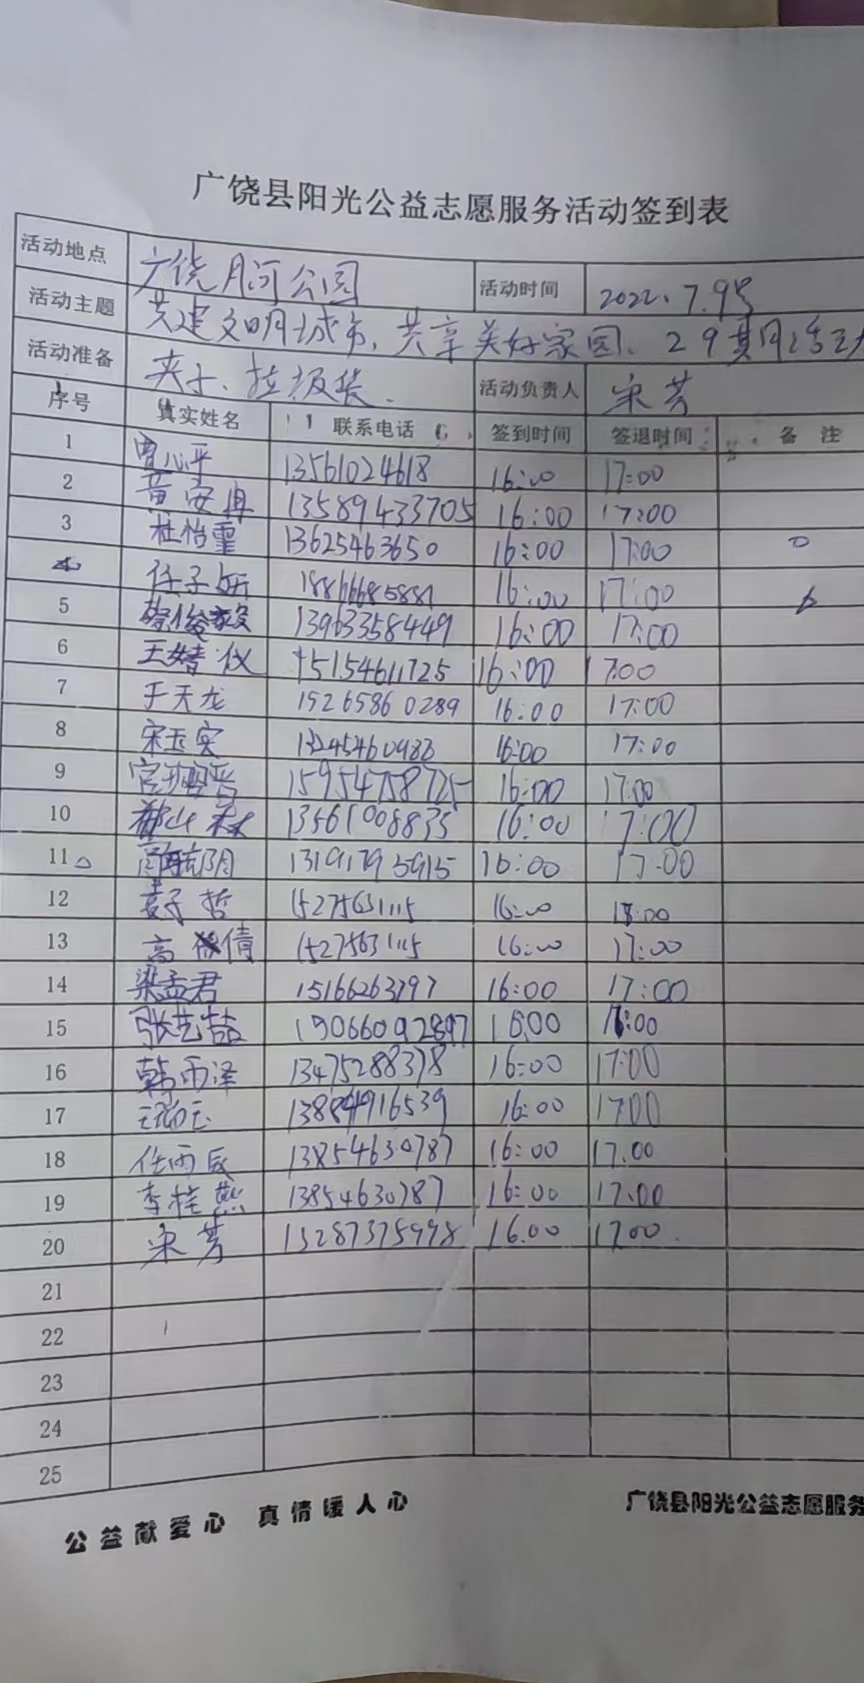 广饶县阳光公益志愿服务活动签到表
活动地点 广饶月河公园 活动时间 2022.7.9号
活动主题 共建文明城市，共享美好家园、29其月活
活动准备 夹子、垃圾袋. 活动负责人 宋芳
序号 真实姓名 联系电话 签到时间 签退时间 备 注
1 平 13561024618 16:00 17:00
2 黄安冉 13589433705 16:00 17:00
3 杜怡霏 13625463650 16:00 17:00
4 任子妍 16:00 17:00
5 蔡俊毅 13963358449 16:00 17:00
6 王婧仪 15154611725 16:00 17:00
7 于天龙 15265860289 16:00 17:00
8 宋玉宾 16:00 17:00
9 15954758725 16:00 17:00
10 13561008835 16:00 17:00
11 13191795915 16:00 17:00
12 子哲 15275631115 16:00
13 高倩 15275631115 16:00 17:00
14 梁孟君 15166263797 16:00 17:00
15 张艺喆 19066092897 16:00
16 韩雨泽 13475288378 16:00 17:00
17 16:00 17:00
18 任雨辰 13854630787 16:00 17.00
19 李桂燕 13854630787 16:00 17:00
20 宋芳 13287375998 16.00 17.00
21
22
23
24
25
公益献爱心 真情暖人心 广饶县阳光公益志愿服务